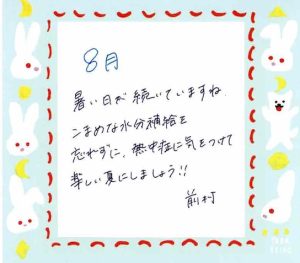 8月
暑い日が続いていますね。
こまめな水分補給を
忘れずに、熱中症に気をつけて
楽しい夏にしましょう!!
前村